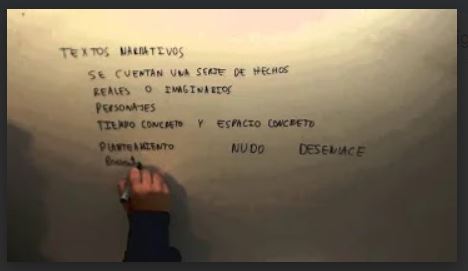 TEXTOS NARRATIVOS
SE CUENTAN UNA SERIE DE HECHOS
REALES O IMAGINARIOS
PERSONAJES
TIEMPO CONCRETO Y ESPACIO CONCRETO
PLANTEAMIENTO NUDO DESENLACE